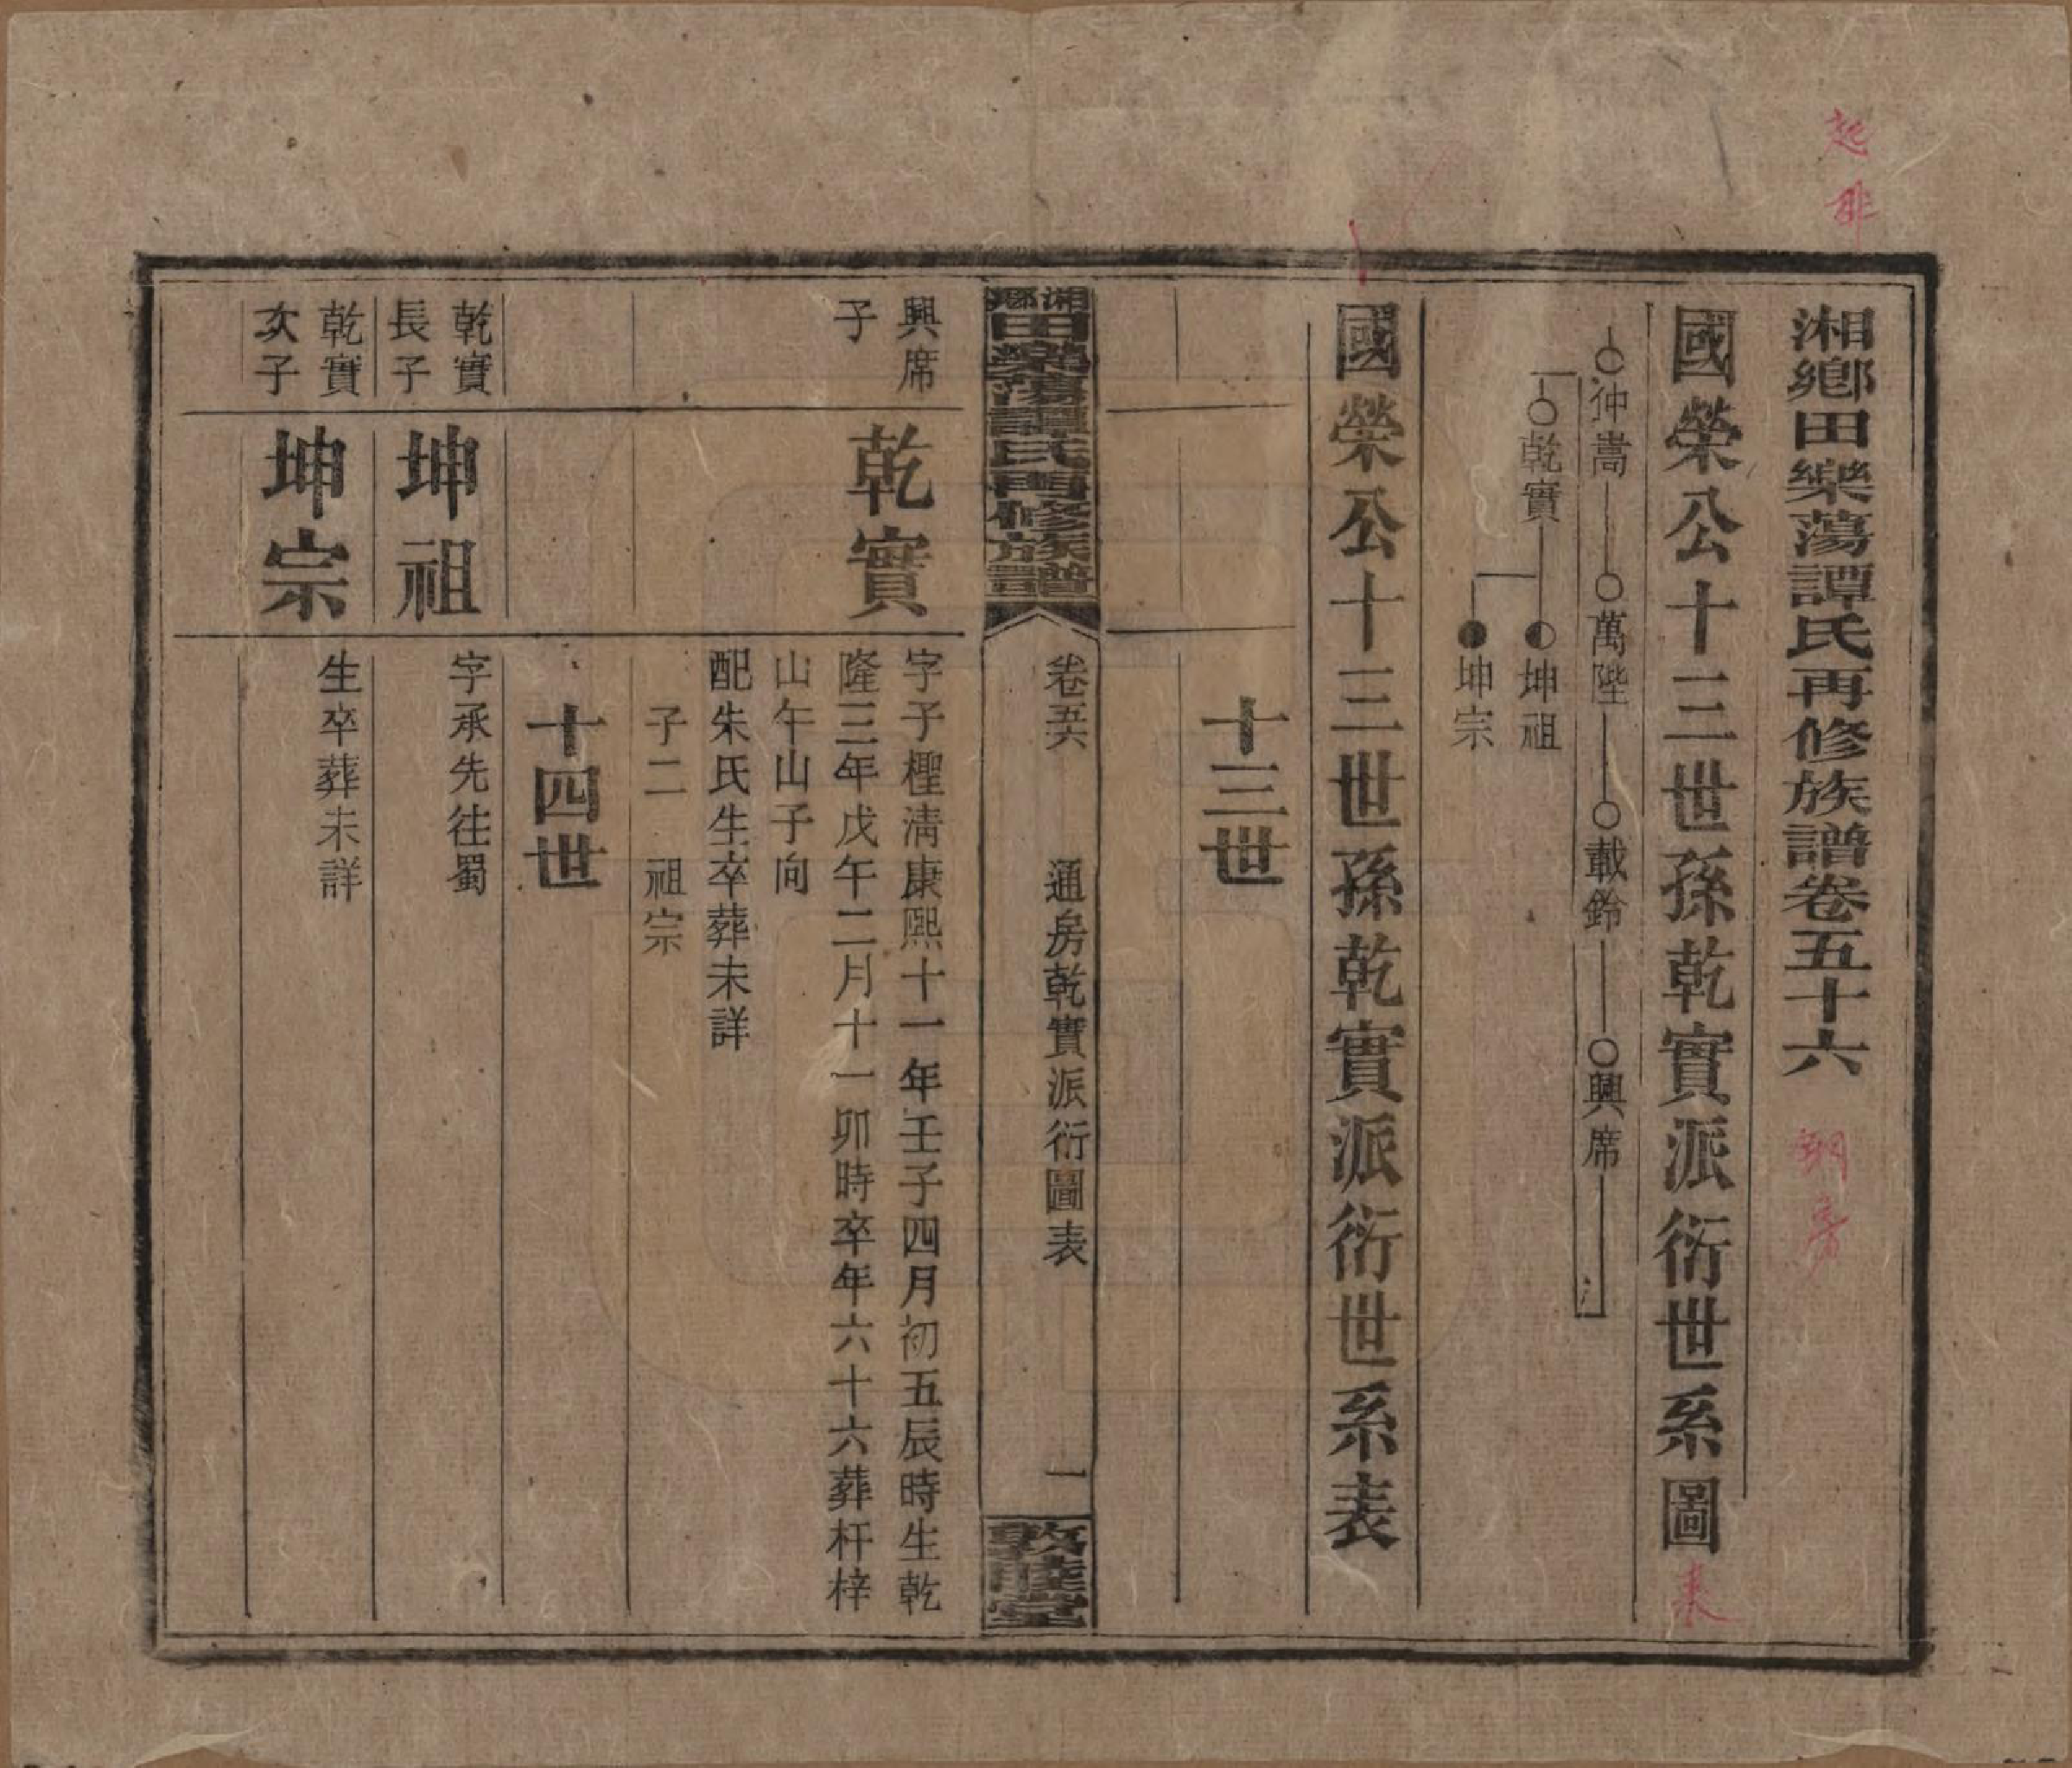 湘鄉田樂蕩譚氏再修族譜卷五十六
國榮公十三世孫乾實派衍世系圖
仲嵩 萬陛 載鈴 興席
乾實 坤祖
坤宗
國榮公十三世孫乾實派衍世系表
十三世
湘鄉田樂蕩譚氏再修族譜
卷五六 通房乾實派衍圖表 一
敦睦堂
興席
子
乾實
字子檉清康熙十一年壬子四月初五辰時生乾
隆三年戊午二月十一卯時卒年六十六葬杆梓
山午山子向
配朱氏生卒葬未詳
子二 祖宗
十四世
乾實
長子
坤祖
字承先往蜀
乾實
次子
坤宗
生卒葬未詳